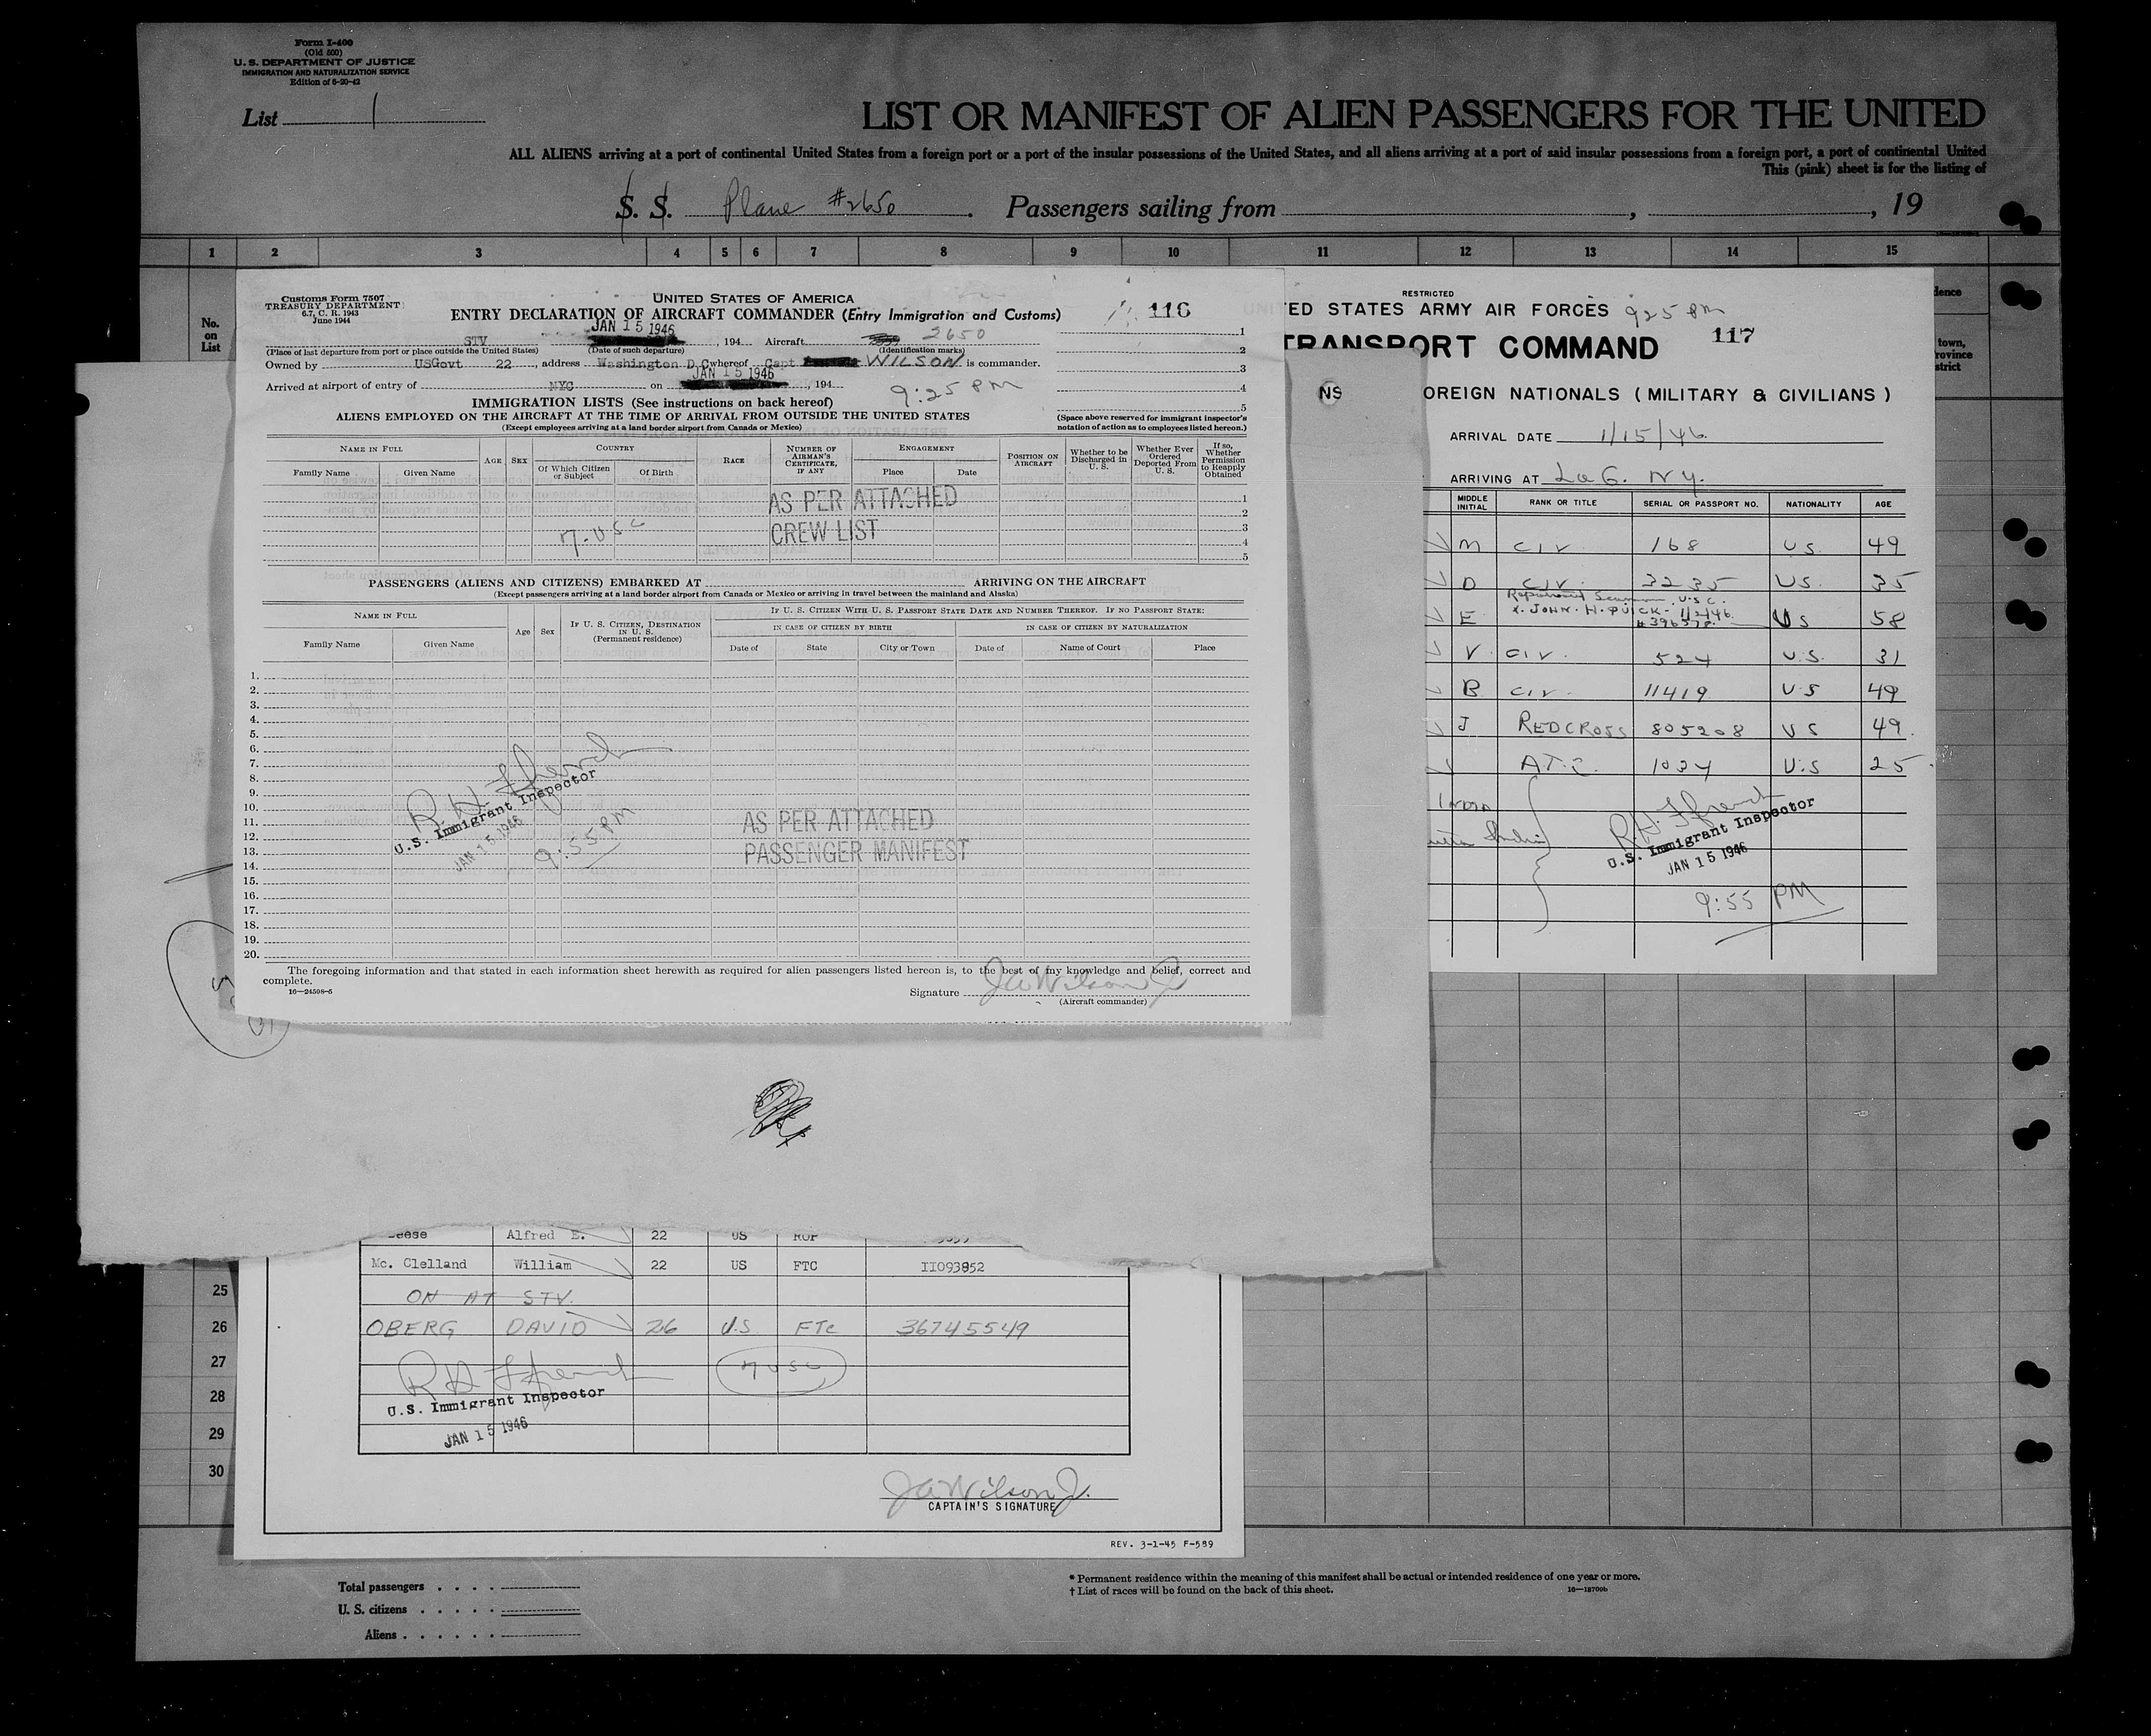 Form I-400
(Old 500)
U. S. DEPARTMENT OF JUSTICE
IMMIGRATION AND NATURALIZATION SERVICE
Edition of 6-20-42
List 1
LIST OR MANIFEST OF ALIEN PASSENGERS FOR THE UNITED
ALL ALIENS arriving at a port of continental United States from a foreign port or a port of the insular possessions of the United States, and all aliens arriving at a port of said insular possessions from a foreign port, a port of continental United
This (pink) sheet is for the listing of
S. S. Plane #2650. Passengers sailing from , , 19
1 2 3 4 5 6 7 8 9 10 11 12 13 14 15
No. on List
Customs Form 7507
TREASURY DEPARTMENT
6.7, C. R. 1943
June 1944
UNITED STATES OF AMERICA
ENTRY DECLARATION OF AIRCRAFT COMMANDER (Entry Immigration and Customs)
116
STV JAN 15 1946, 194 Aircraft 2650
(Place of last departure from port or place outside the United States) (Date of such departure) (Identification marks)
Owned by USGovt 22, address Washington D C whereof Capt WILSON is commander.
Arrived at airport of entry of NYC on JAN 15 1946, 194
9:25 PM
1
2
3
4
5
IMMIGRATION LISTS (See instructions on back hereof)
ALIENS EMPLOYED ON THE AIRCRAFT AT THE TIME OF ARRIVAL FROM OUTSIDE THE UNITED STATES
(Except employees arriving at a land border airport from Canada or Mexico)
(Space above reserved for immigrant inspector's notation of action as to employees listed hereon.)
NAME IN FULL
Family Name Given Name
AGE SEX
COUNTRY
Of Which Citizen or Subject Of Birth
RACE
NUMBER OF AIRMAN'S CERTIFICATE, IF ANY
ENGAGEMENT
Place Date
POSITION ON AIRCRAFT
Whether to be Discharged in U. S.
Whether Ever Ordered Deported From U. S.
If so, Whether Permission to Reapply Obtained
AS PER ATTACHED
CREW LIST
7-USC
1
2
3
4
5
PASSENGERS (ALIENS AND CITIZENS) EMBARKED AT ARRIVING ON THE AIRCRAFT
(Except passengers arriving at a land border airport from Canada or Mexico or arriving in travel between the mainland and Alaska)
NAME IN FULL
Family Name Given Name
Age Sex
IF U. S. CITIZEN, DESTINATION IN U. S.
(Permanent residence)
IF U. S. CITIZEN WITH U. S. PASSPORT STATE DATE AND NUMBER THEREOF. IF NO PASSPORT STATE:
IN CASE OF CITIZEN BY BIRTH IN CASE OF CITIZEN BY NATURALIZATION
Date of State City or Town Date of Name of Court Place
1.
2.
3.
4.
5.
6.
7.
8.
9.
10.
11.
12.
13.
14.
15.
16.
17.
18.
19.
20.
U.S. Immigrant Inspector
JAN 15 1946
9:55 PM
AS PER ATTACHED
PASSENGER MANIFEST
The foregoing information and that stated in each information sheet herewith as required for alien passengers listed hereon is, to the best of my knowledge and belief, correct and
complete.
16—24508-5
Signature JAWilson Jr
(Aircraft commander)
RESTRICTED
ED STATES ARMY AIR FORCES 925 PM
TRANSPORT COMMAND
117
NS
OREIGN NATIONALS ( MILITARY & CIVILIANS )
ARRIVAL DATE 1/15/46
ARRIVING AT La G. NY.
MIDDLE INITIAL RANK OR TITLE SERIAL OR PASSPORT NO. NATIONALITY AGE
M CIV 168 US 49
D CIV. 3235 US. 35
U.S.C.
E X. JOHN. H. QUICK - 1/2/46 US 58
V CIV. 524 U.S. 31
B CIV. 11419 U.S 49
J REDCROSS 805208 US 49.
A.T.C. 1034 U.S 25
U.S. Immigrant Inspector
JAN 15 1946
9:55 PM
dence
town,
rovince
strict
eese Alfred E. 22 US ROF
Mc. Clelland William 22 US FTC II093852
ON AT STV.
OBERG DAVID 26 U.S FTC 36745549
7 USC
U.S. Immigrant Inspector
JAN 15 1946
JAWilson Jr.
CAPTAIN'S SIGNATURE
REV. 3-1-45 F-589
25
26
27
28
29
30
Total passengers . . . .
U. S. citizens . . . . .
Aliens . . . . . .
* Permanent residence within the meaning of this manifest shall be actual or intended residence of one year or more.
† List of races will be found on the back of this sheet.
16—18700b